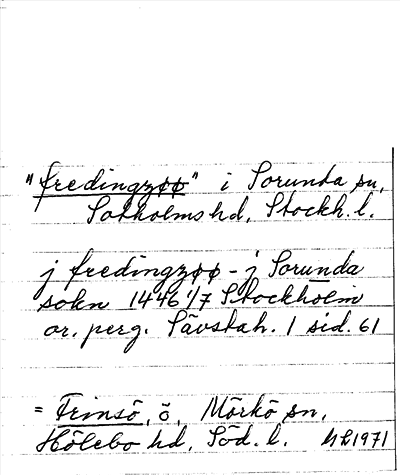 "fredingzøø" i Sorunda sn,
Sotholms hd, Stockh. l.
j fredingzøø - j Sorunda
sokn 1446 1/7 Stockholm
or. perg. Sävstah. 1 sid. 61
= Frinsö, ö, Mörkö sn,
Hölebo hd, Söd. l. 1971